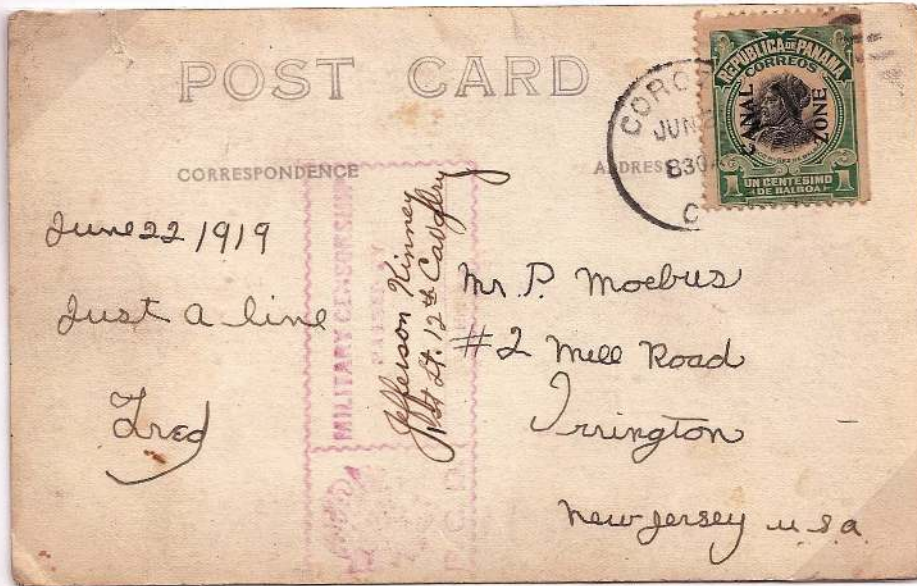 POST CARD
CORRESPONDENCE
ADDRESS
REPUBLICA DE PANAMA
CORREOS
CANAL ZONE
1 UN CENTESIMO 1
DE BALBOA
JUN
830A
C
June 22 1919
Just a line
Fred
MILITARY CENSORSHIP
PASSED BY
Jefferson Kinney
1st Lt. 12th Cavalry
Mr. P. Moebus
#2 Mill Road
Irrington
New Jersey U S A